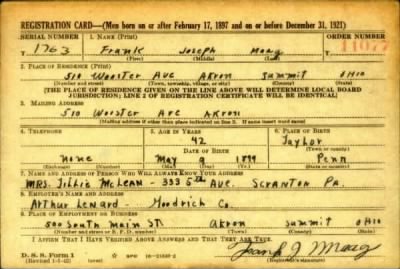 REGISTRATION CARD—(Men born on or after February 17, 1897 and on or before December 31, 1921)
SERIAL NUMBER 1. NAME (Print) ORDER NUMBER
T 1763 Frank Joseph Maag 11077
(First) (Middle) (Last)
2. PLACE OF RESIDENCE (Print)
510 Wooster Ave Akron Summit Ohio
(Number and street) (Town, township, village, or city) (County) (State)
[THE PLACE OF RESIDENCE GIVEN ON THE LINE ABOVE WILL DETERMINE LOCAL BOARD
JURISDICTION; LINE 2 OF REGISTRATION CERTIFICATE WILL BE IDENTICAL]
3. MAILING ADDRESS
510 Wooster Ave Akron
[Mailing address if other than place indicated on line 2. If same insert word same]
4. TELEPHONE 5. AGE IN YEARS 6. PLACE OF BIRTH
42 Taylor
DATE OF BIRTH (Town or county)
None May 9 1899 Penn
(Mo.) (Day) (Yr.) (State or country)
7. NAME AND ADDRESS OF PERSON WHO WILL ALWAYS KNOW YOUR ADDRESS
Mrs. Tillie McLean - 333 5th Ave. Scranton Pa.
8. EMPLOYER'S NAME AND ADDRESS
Arthur Lenard - Goodrich Co.
9. PLACE OF EMPLOYMENT OR BUSINESS
500 South Main St Akron Summit Ohio
(Number and street or R. F. D. number) (Town) (County) (State)
I AFFIRM THAT I HAVE VERIFIED ABOVE ANSWERS AND THAT THEY ARE TRUE.
D. S. S. Form 1
(Revised 1-5-42) (over) GPO 16—21630-2
Frank J Maag